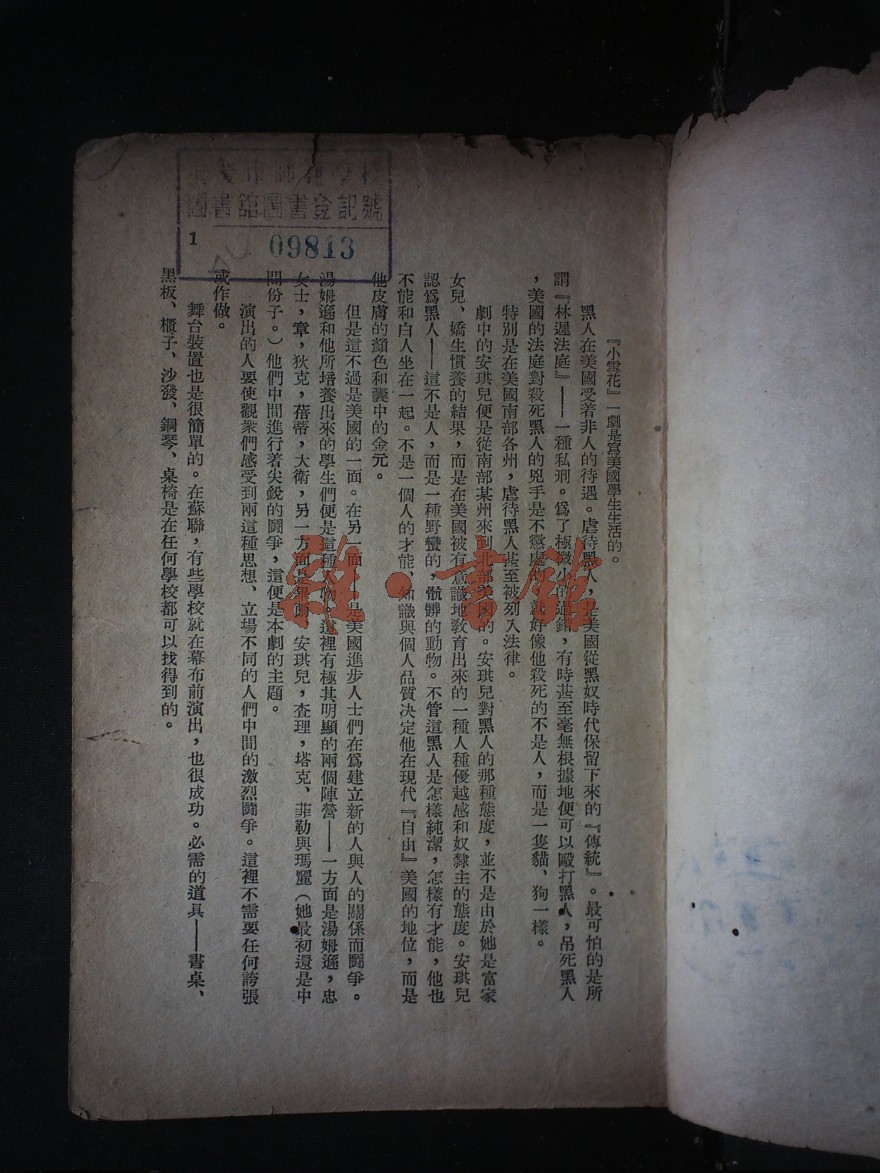 『小雪花』一劇是寫美國學生生活的。
黑人在美國受着非人的待遇。虐待黑人，是美國從黑奴時代保留下來的『傳統』。最可怕的是所
謂『林遲法庭』——一種私刑。爲了極微小的過錯，有時甚至毫無根據地便可以毆打黑人，吊死黑人
，美國的法庭對殺死黑人的兇手是不懲處的，就好像他殺死的不是人，而是一隻貓、狗一樣。
特別是在美國南部各州，虐待黑人甚至被列入法律。
劇中的安琪兒便是從南部某州來到北部美國的。安琪兒對黑人的那種態度，並不是由於她是富家
女兒、嬌生慣養的結果，而是在美國被有意識地敎育出來的一種人種優越感和奴隸主的態度。安琪兒
認爲黑人——這不是人，而是一種野蠻的，骯髒的動物。不管這黑人是怎樣純潔，怎樣有才能，他也
不能和白人坐在一起。不是一個人的才能、知識與個人品質決定他在現代『自由』美國的地位，而是
他皮膚的顏色和囊中的金元。
但是這不過是美國的一面。在另一面，是美國進步人士們在爲建立新的人與人的關係而鬪爭。
湯姆遜和他所培養出來的學生們便是這種人物。這裡有極其明顯的兩個陣營——一方面是湯姆遜，忠
女士，章，狄克，蓓蒂，大衛，另一方面是 安琪兒，查理，塔克、菲勒與瑪麗（她最初還是中
間份子。）他們中間進行着尖銳的鬪爭，這便是本劇的主題。
演出的人要使觀衆們感受到兩這種思想、立場不同的人們中間的激烈鬪爭。這裡不需要任何誇張
或作做。
舞台裝置也是很簡單的。在蘇聯，有些學校就在幕布前演出，也很成功。必需的道具——書桌、
黑板、櫃子、沙發、鋼琴、桌椅是在任何學校都可以找得到的。
1
師範學校
圖書館圖書登記號
09813
雜·書館